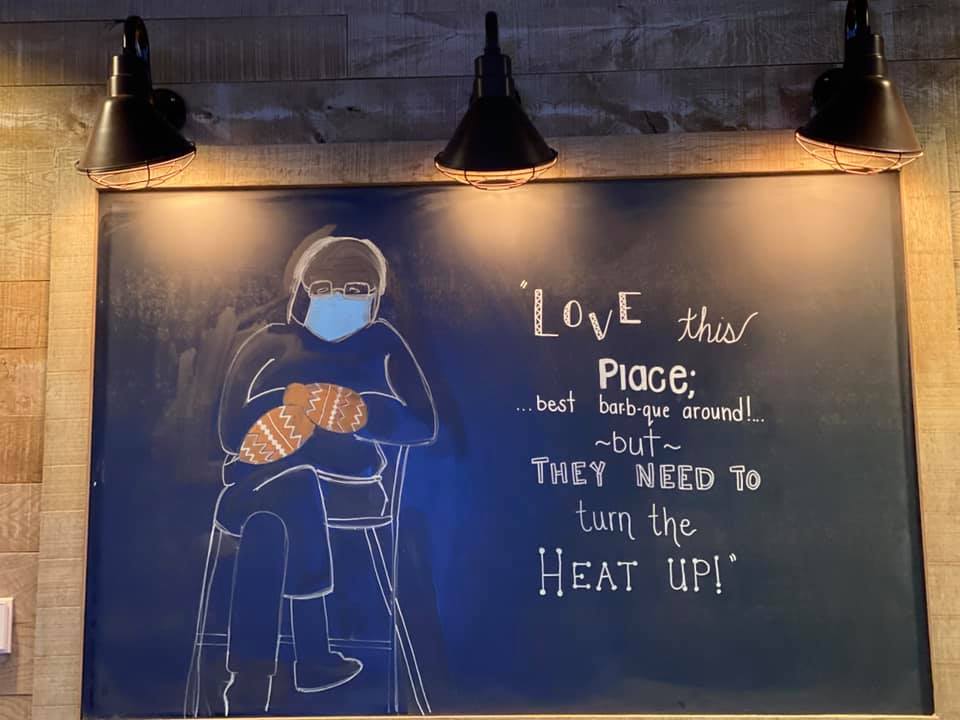 "LOVE this
Place;
...best barb-que around!...
~but~
THEY NEED TO
turn the
HEAT UP!"